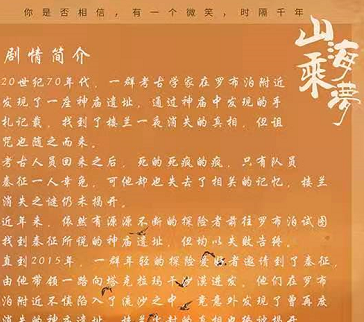 你是否相信，有一个微笑，时隔千年
山海乘梦
剧情简介
20世纪70年代，一群考古学家在罗布泊附近
发现了一座神庙遗址，通过神庙中发现的手
札记载，找到了楼兰一夜消失的真相，但诅
咒也随之而来。
考古人员回来之后，死的死疯的疯，只有队员
秦征一人幸免，可他却也失去了相关的记忆，楼兰
消失之谜仍未揭开。
近年来，依然有源源不断的探险者前往罗布泊试图
找到秦征所说的神庙遗址，但均以失败告终。
直到2015年，一群年轻的探险爱好者邀请到了秦征，
由他带领一路向塔克拉玛干沙漠进发，他们在罗布
泊附近不慎陷入了流沙之中，竟意外发现了曾再度
消失的神庙遗址，楼兰